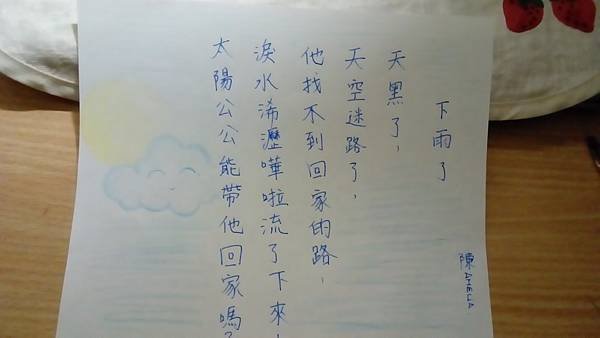 下雨了
陳AMELIA
天黑了，
天空迷路了，
他找不到回家的路，
淚水淅瀝嘩啦流了下來，
太陽公公能帶他回家嗎？